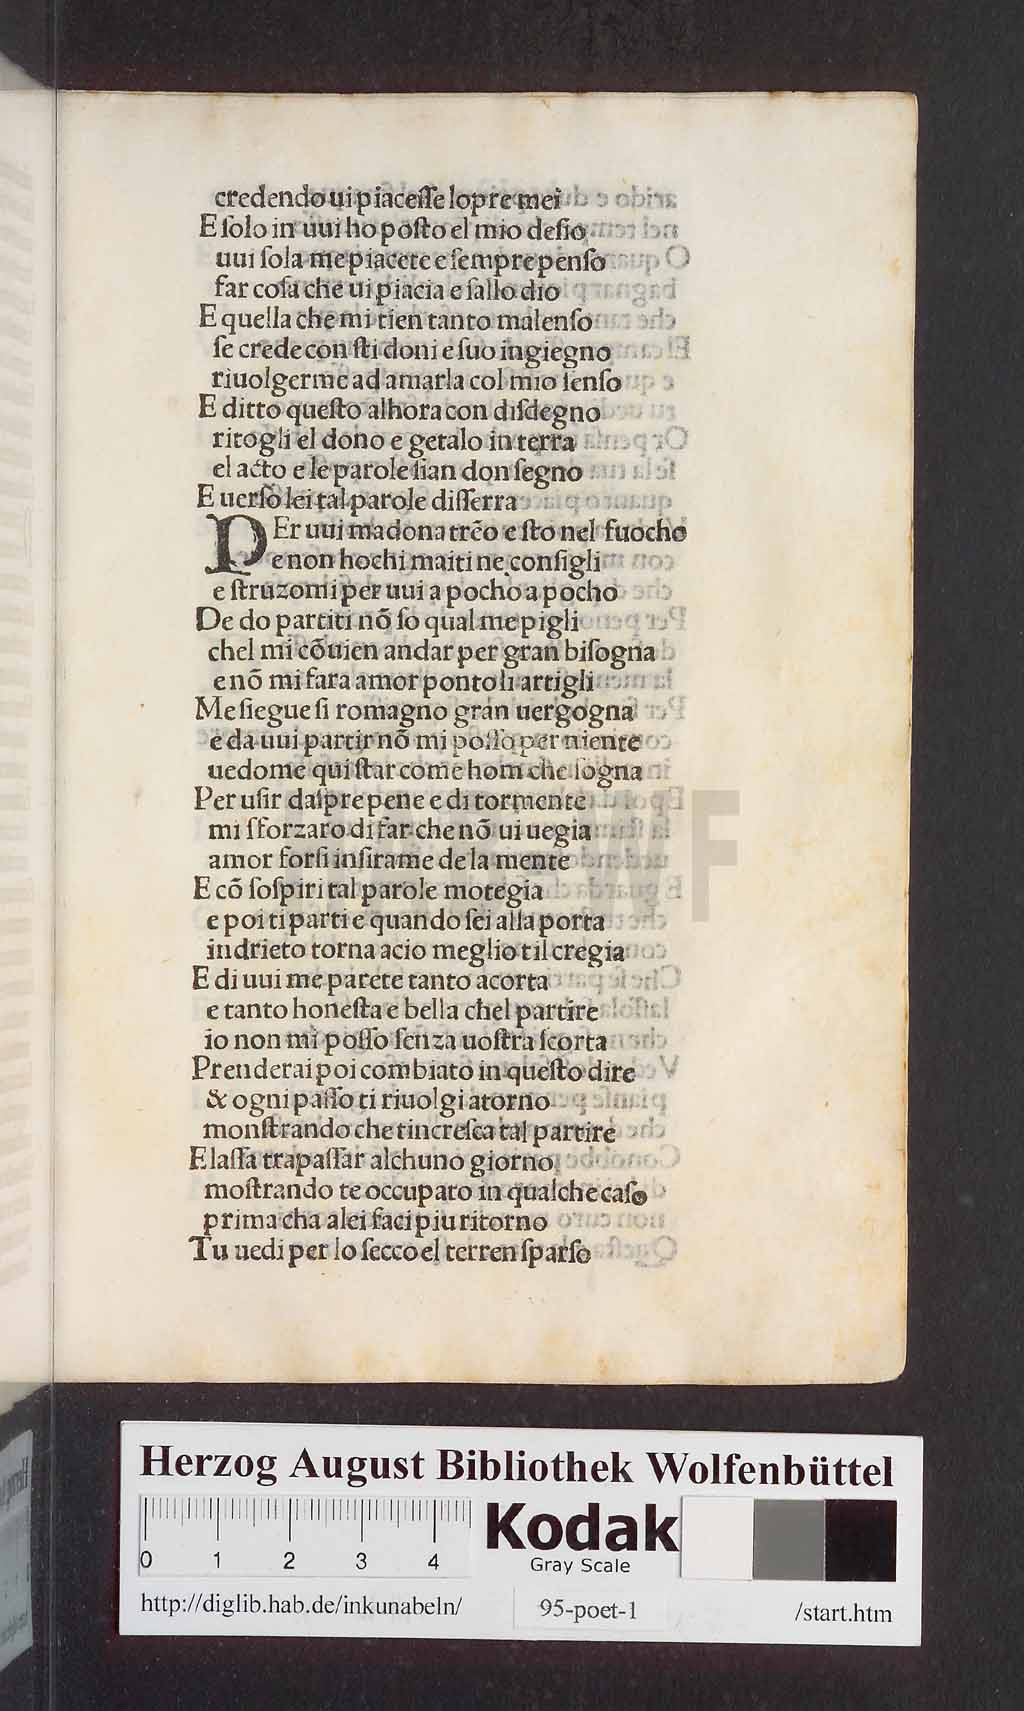 credendo ui piaceſſe lopre mei
E ſolo in uui ho poſto el mio deſio
uui ſola me piacete e ſempre penſo
far coſa che ui piacia e ſallo dio
E quella che mi tien tanto malenſo
ſe crede con ſti doni e ſuo ingiegno
riuolgerme ad amarla col mio ſenſo
E ditto queſto alhora con diſdegno
ritogli el dono e getalo in terra
el acto e le parole ſian don ſegno
E uerſo lei tal parole diſſerra
PEr uui madona trẽo e ſto nel fuocho
e non hochi mai ti ne conſigli
e ſtruzomi per uui a pocho a pocho
De do partiti nõ ſo qual me pigli
chel mi cõuien andar per gran biſogna
e nõ mi fara amor ponto li artigli
Me ſiegue ſi romagno gran uergogna
e da uui partir nõ mi poſſo per niente
uedome qui ſtar come hom che ſogna
Per uſir daſpre pene e di tormente
mi ſforzaro di far che nõ ui uegia
amor forſi inſirame de la mente
E cõ ſoſpiri tal parole motegia
e poi ti parti e quando ſei alla porta
indrieto torna acio meglio til cregia
E di uui me parete tanto acorta
e tanto honeſta e bella chel partire
io non mi poſſo ſenza uoſtra ſcorta
Prenderai poi combiato in queſto dire
& ogni paſſo ti riuolgi atorno
monſtrando che tincreſca tal partire
E laſſa trapaſſar alchuno giorno
moſtrando te occupato in qualche caſo
prima cha alei faci piu ritorno
Tu uedi per lo ſecco el terren ſparſo
Herzog August Bibliothek Wolfenbüttel
0 1 2 3 4
Kodak
Gray Scale
http://diglib.hab.de/inkunabeln/ 95-poet-1 /start.htm